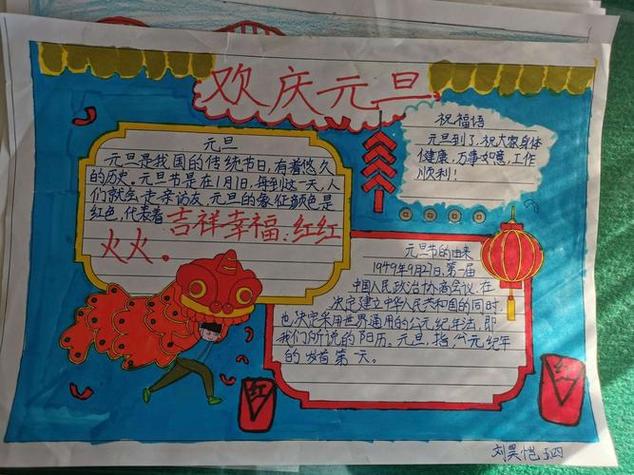 欢庆元旦
元旦
元旦是我国的传统节日,有着悠久
的历史。元旦节是在1月1日,每到这一天,人
们就会走亲访友,元旦的象征颜色是
红色,代表着吉祥幸福,红红
火火。
祝福语
元旦到了,祝大家身体
健康,万事如意,工作
顺利!
元旦节的由来
1949年9月27日,第一届
中国人民政治协商会议,在
决定建立中华人民共和国的同时,
也决定采用世界通用的公元纪年法,即
我们所说的阳历。元旦,指公元纪年
的岁首第一天。
红
刘昊恺